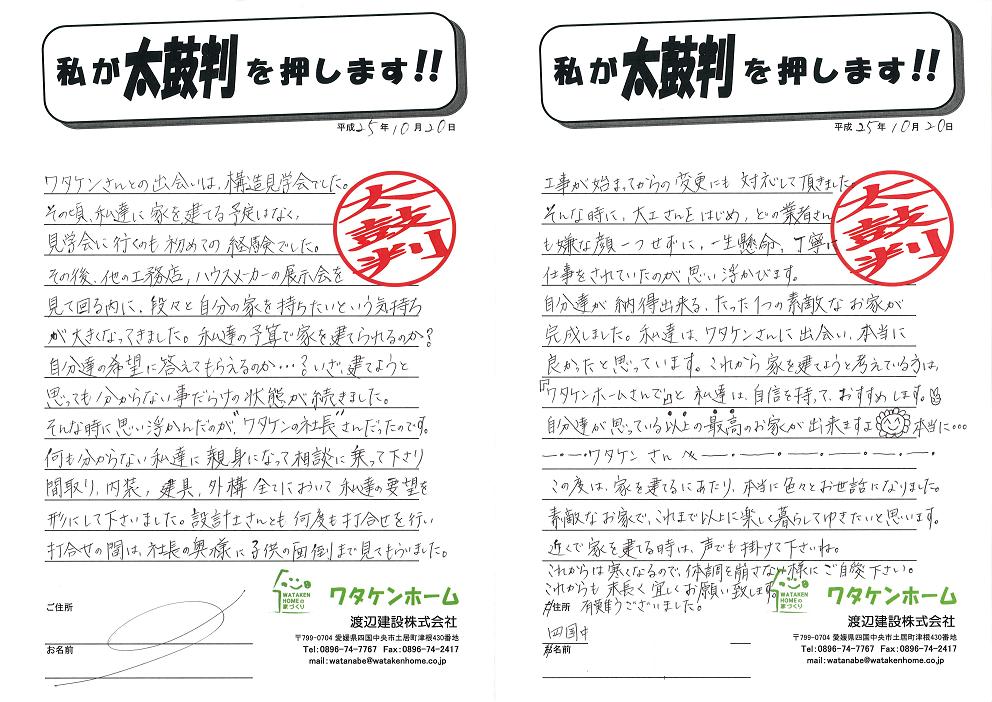 私が太鼓判を押します!!
平成25年10月20日
太鼓判
ワタケンさんとの出会いは、構造見学会でした。
その頃、私達に家を建てる予定はなく、
見学会に行くのも初めての経験でした。
その後、他の工務店、ハウスメーカーの展示会を
見て回る内に、段々と自分の家を持ちたいという気持ち
が大きくなってきました。私達の予算で家を建てられるのか?
自分達の希望に答えてもらえるのか…?いざ、建てようと
思っても分からない事だらけの状態が続きました。
そんな時に思い浮かんだのが、"ワタケンの社長"さんだったのです。
何も分からない私達に親身になって相談に乗って下り
間取り、内装、建具、外構全てにおいて私達の要望を
形にして下さいました。設計士さんとも何度も打合せを行い
打合せの間は、社長の奥様に子供の面倒まで見てもらいました。
ご住所
お名前
WATAKEN HOMEの家づくり
ワタケンホーム
渡辺建設株式会社
〒799-0704 愛媛県四国中央市土居町津根430番地
Tel:0896-74-7767 Fax:0896-74-2417
mail:watanabe@watakenhome.co.jp
私が太鼓判を押します!!
平成25年10月20日
太鼓判
工事が始まってからの変更にも対応して頂きました。
そんな時に、大工さんをはじめ、どの業者さん
も嫌な顔一つせずに、一生懸命、丁寧に
仕事をされていたのが思い浮かびます。
自分達が納得出来る、たった1つの素敵なお家が
完成しました。私達は、ワタケンさんに出会い、本当に
良かったと思っています。これから家を建てようと考えている方は、
『ワタケンホームさんで』と私達は、自信を持って、おすすめします。
自分達が思っている以上の最高のお家が出来ますよ 本当に…
ワタケンさんへ
この度は、家を建てるにあたり、本当に色々とお世話になりました。
素敵なお家で、これまで以上に楽しく暮らしてゆきたいと思います。
近くで家を建てる時は、声でも掛けて下さいね。
これからは寒くなるので、体調を崩さない様にご自愛下さい。
これからも末長く宜しくお願い致します。
ご住所 有難うございました。
四国中
お名前
WATAKEN HOMEの家づくり
ワタケンホーム
渡辺建設株式会社
〒799-0704 愛媛県四国中央市土居町津根430番地
Tel:0896-74-7767 Fax:0896-74-2417
mail:watanabe@watakenhome.co.jp